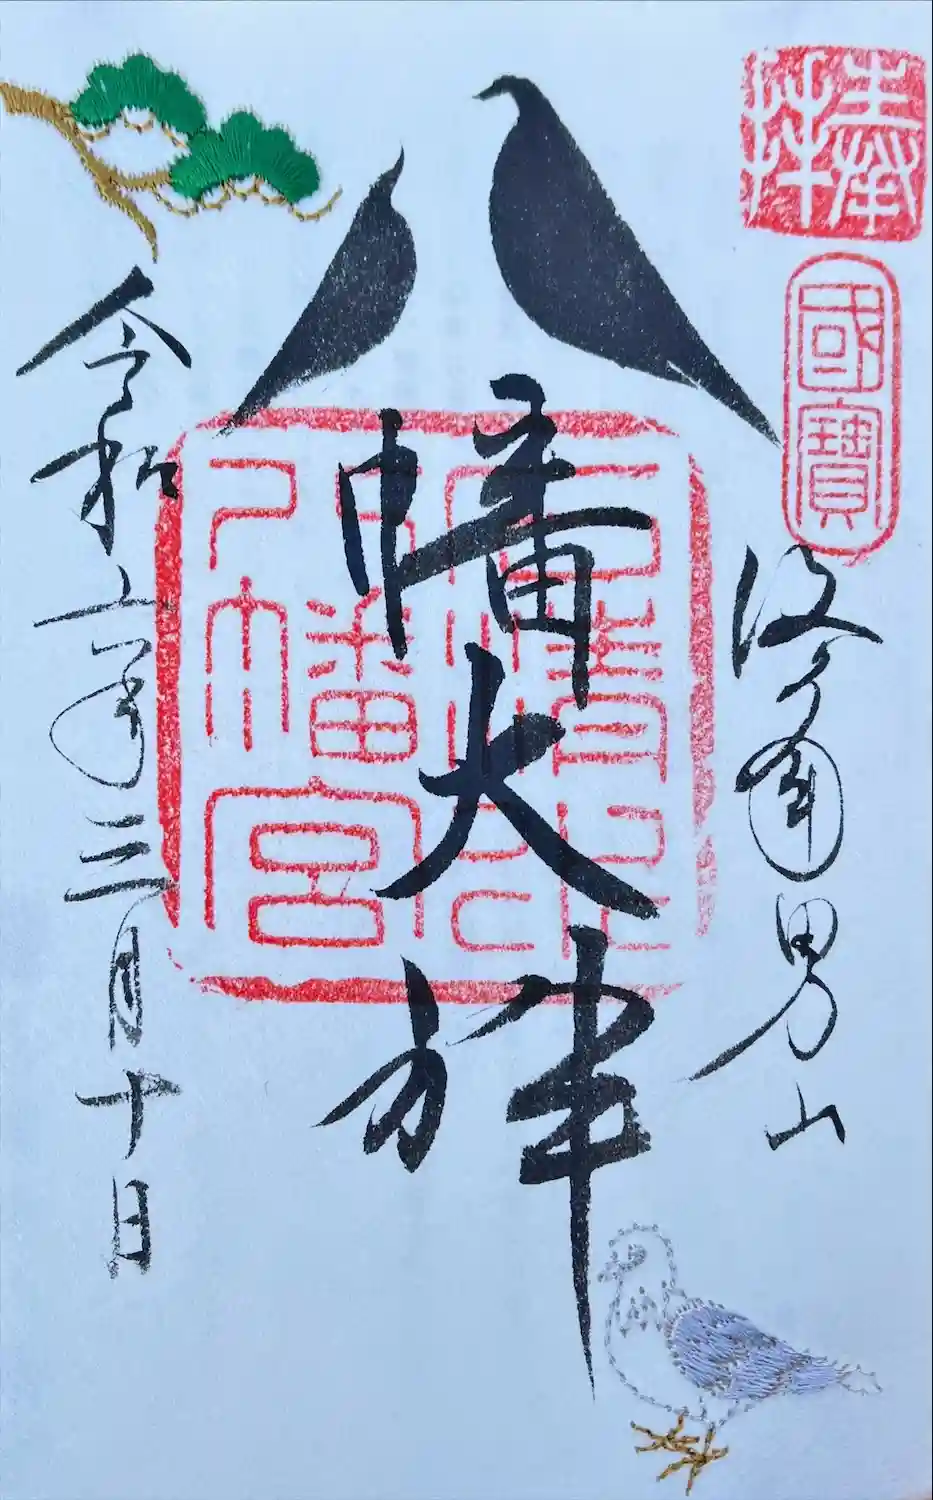 奉拝
國寶
洛南男山
八幡大神
石清水
八幡宮
令和六年三月十日